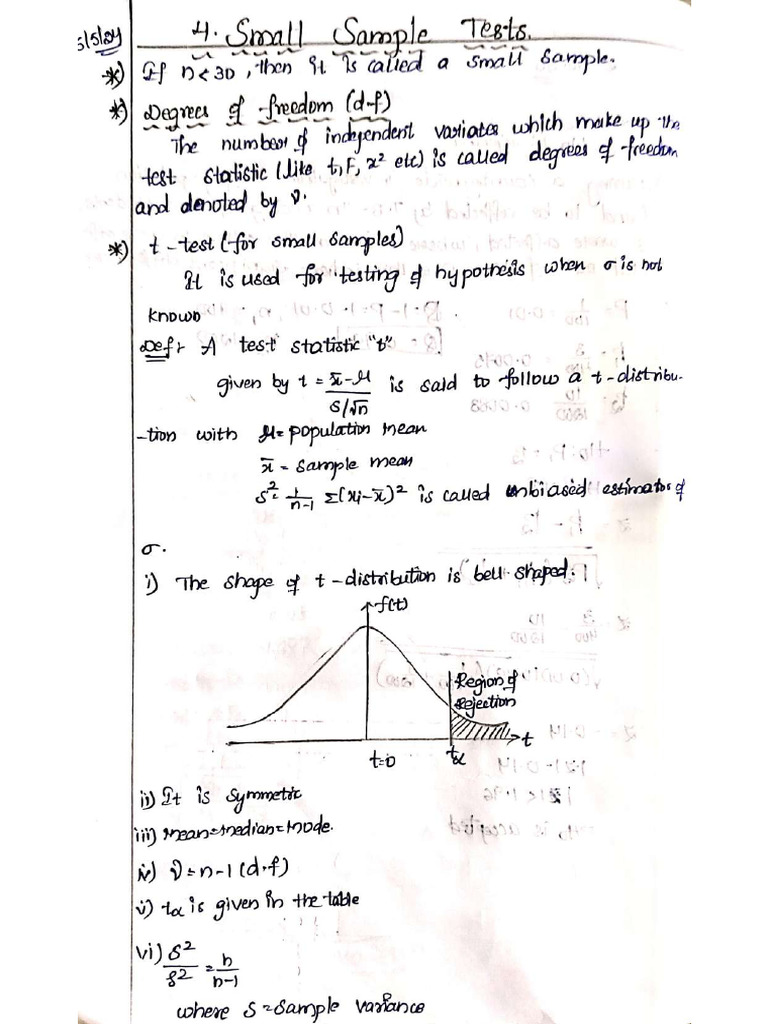 5/5/24
4. Small Sample Tests.
*) If n<30, then it is called a small sample.
*) Degrees of freedom (d.f)
The number of independent variates which make up the
test statistic (like t, F, x² etc) is called degrees of freedom
and denoted by ν.
*) t-test (for small samples)
It is used for testing of hypothesis when σ is not
known
Def: A test statistic "t"
given by t = x̄-μ / s/√n is said to follow a t-distribu-
-tion with μ = population mean
x̄ = sample mean
s² = 1/n-1 Σ(xi-x̄)² is called unbiased estimator of
σ.
i) The shape of t-distribution is bell shaped.
f(t)
Region of
Rejection
t=0 tα t
ii) It is symmetric
iii) Mean=Median=Mode.
iv) ν=n-1 (d.f)
v) tα is given in the table
vi) S²/s² = n/n-1
where s = sample variance